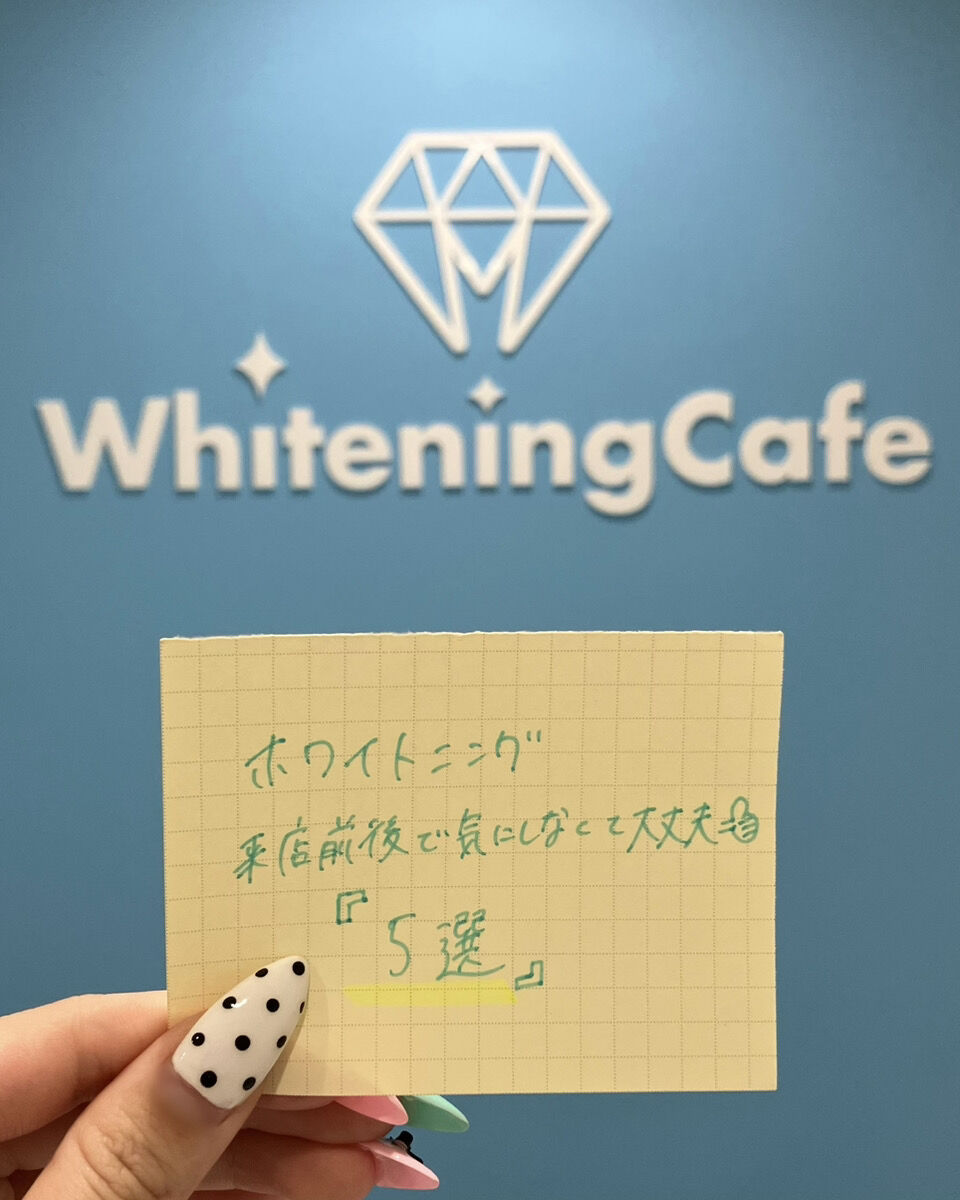 WhiteningCafe
ホワイトニング
来店前後で気にしなくて大丈夫
『5選』